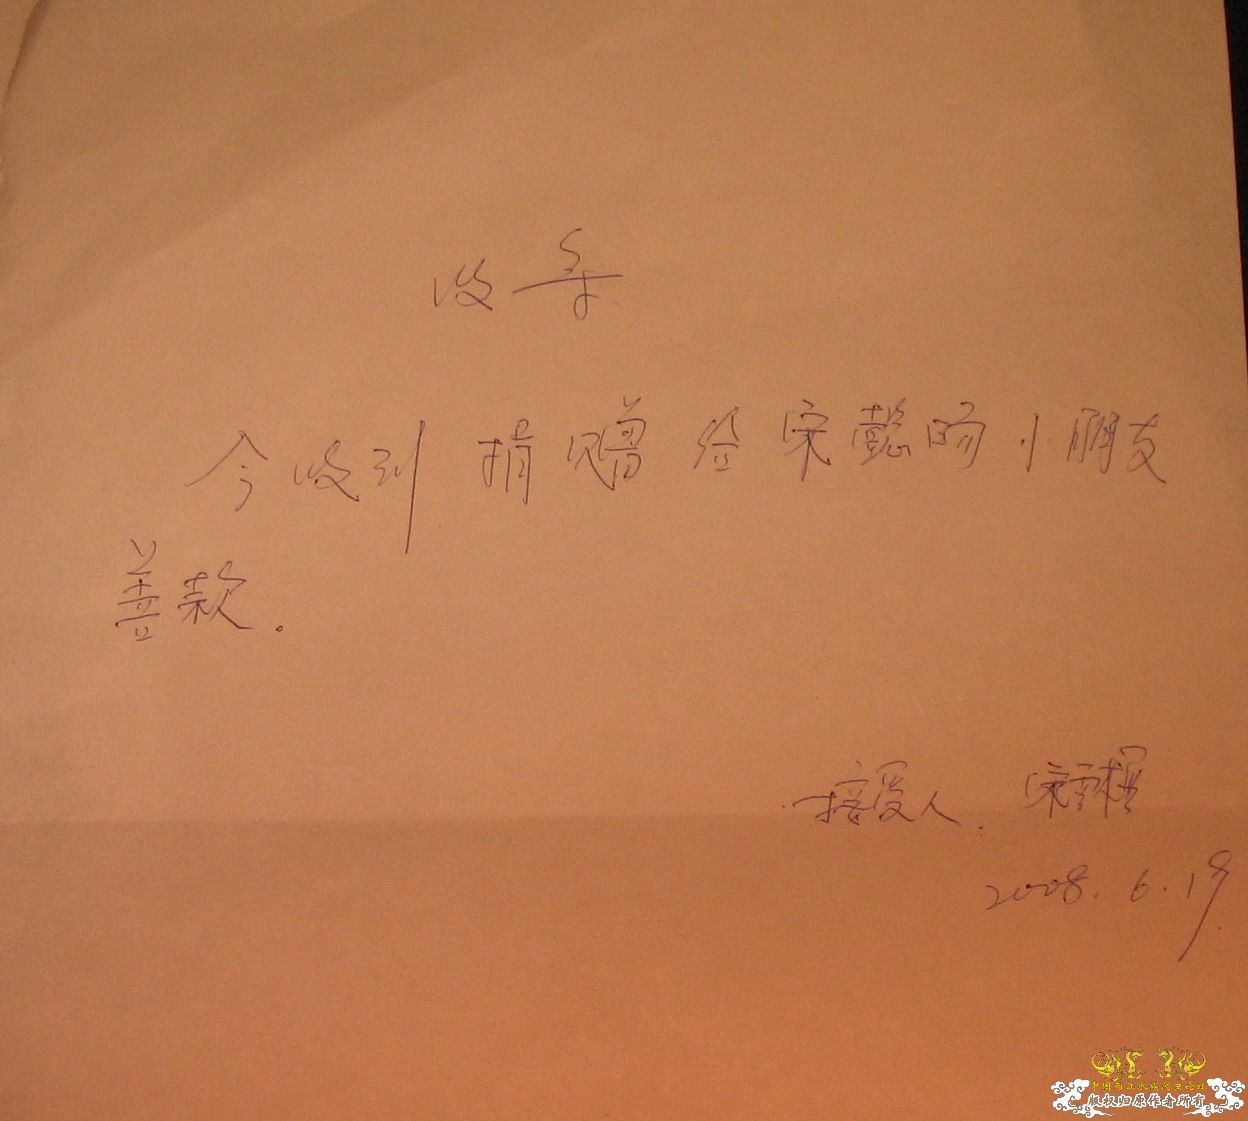 收条
今收到捐赠给宋懿昉小朋友
善款。
接受人:宋
2008.6.19
版权归原作者所有